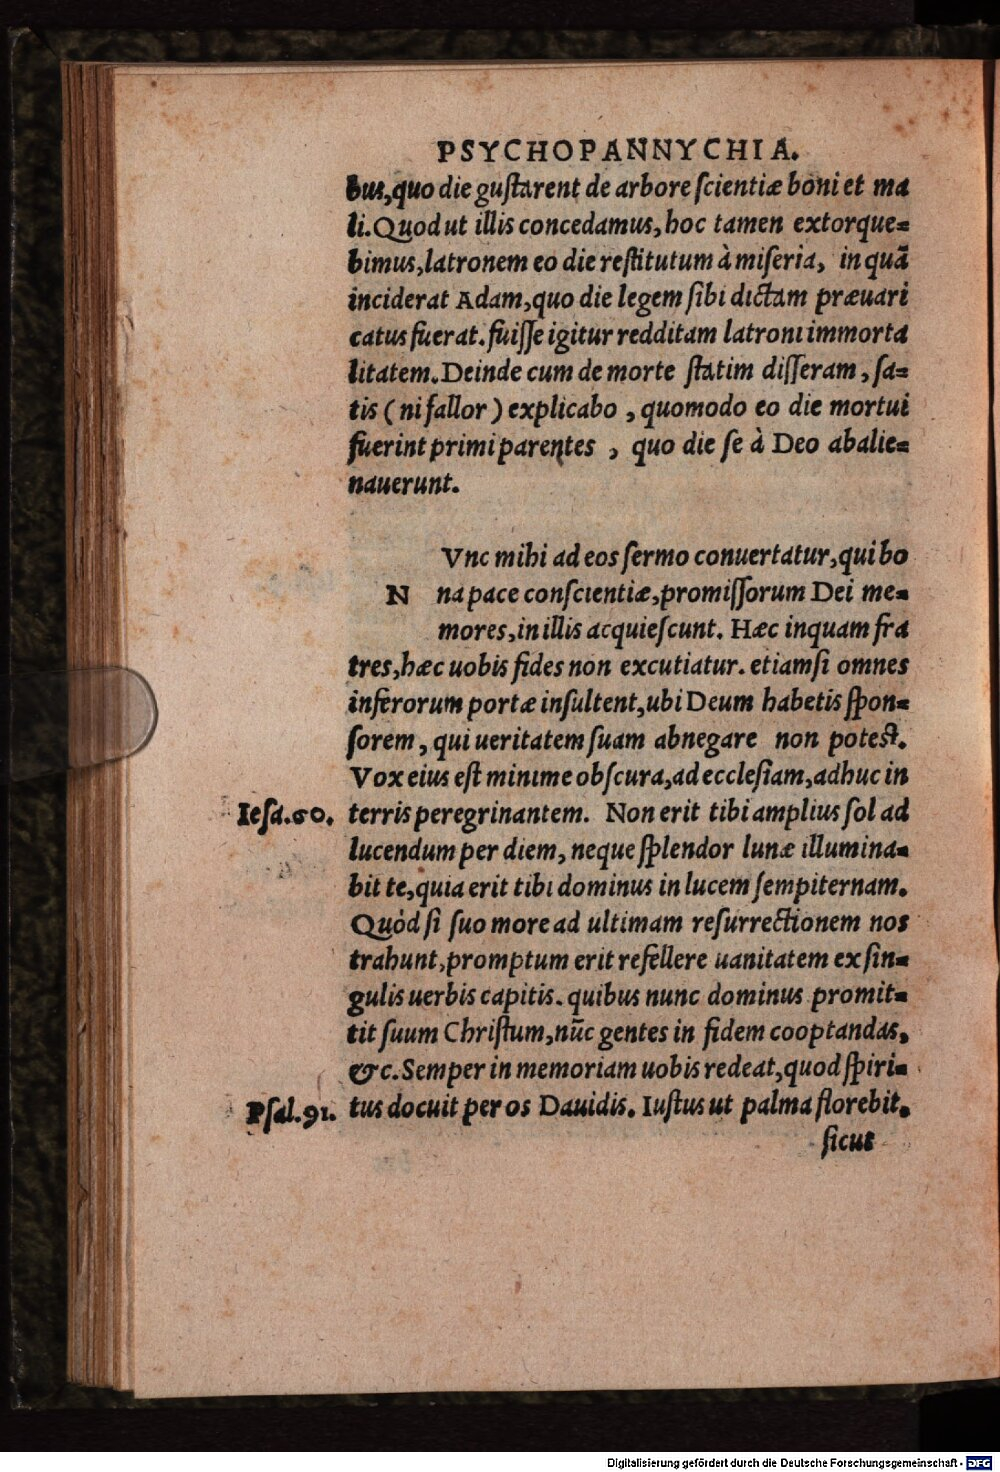 PSYCHOPANNYCHIA.
bus,quo die gustarent de arbore scientiæ boni et ma
li.Quod ut illis concedamus,hoc tamen extorque=
bimus,latronem eo die restitutum à miseria, in quã
inciderat Adam,quo die legem sibi dictam præuari
catus fuerat.fuisse igitur redditam latroni immorta
litatem.Deinde cum de morte statim disseram,sa=
tis (ni fallor) explicabo , quomodo eo die mortui
fuerint primi parentes , quo die se à Deo abalie=
nauerunt.
Vnc mihi ad eos sermo conuertatur,qui bo
N na pace conscientiæ,promissorum Dei me=
mores,in illis acquiescunt. Hæc inquam fra
tres,hæc uobis fides non excutiatur. etiamsi omnes
inferorum portæ insultent,ubi Deum habetis spon=
sorem, qui ueritatem suam abnegare non potest.
Vox eius est minime obscura,ad ecclesiam,adhuc in
Iesa.60. terris peregrinantem. Non erit tibi amplius sol ad
lucendum per diem, neque splendor lunæ illumina=
bit te,quia erit tibi dominus in lucem sempiternam.
Quòd si suo more ad ultimam resurrectionem nos
trahunt,promptum erit refellere uanitatem ex sin=
gulis uerbis capitis. quibus nunc dominus promit=
tit suum Christum,nũc gentes in fidem cooptandas,
&c.Semper in memoriam uobis redeat,quod spiri=
Psal.91. tus docuit per os Dauidis. Iustus ut palma florebit.
sicut
Digitalisierung gefördert durch die Deutsche Forschungsgemeinschaft - DFG